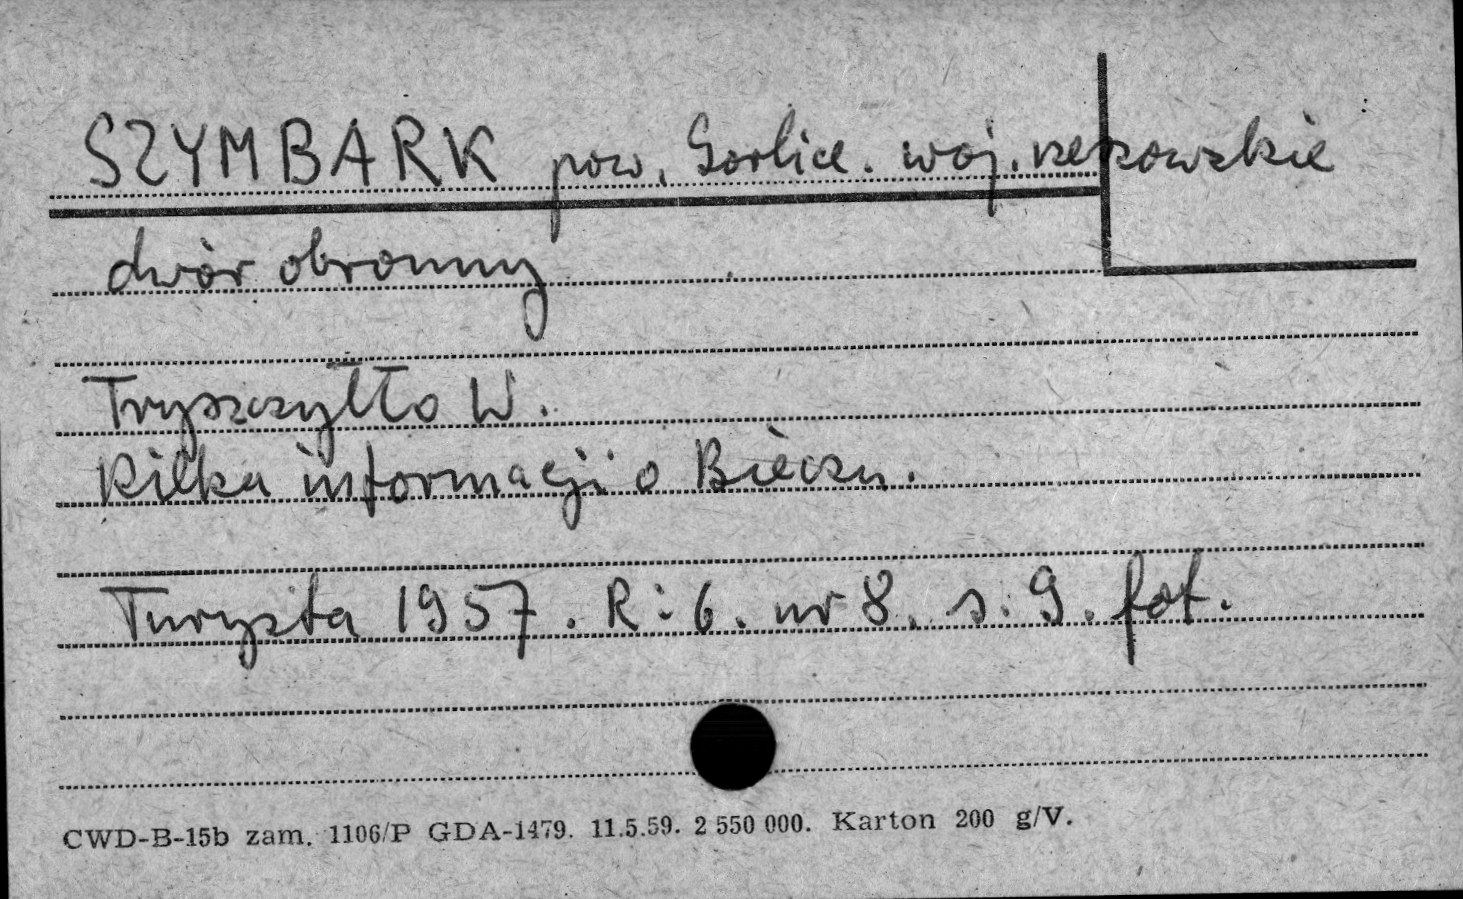 SZYMBARK pow. Gorlice. woj. rzeszowskie
dwór obronny
Tryszczyłło W.
Kilka informacji o Bieczu.
Turysta 1957. R: 6. nr 8. s. 9. fot.
CWD-B-15b zam. 1106/P GDA-1479. 11.5.59. 2 550 000. Karton 200 g/V.